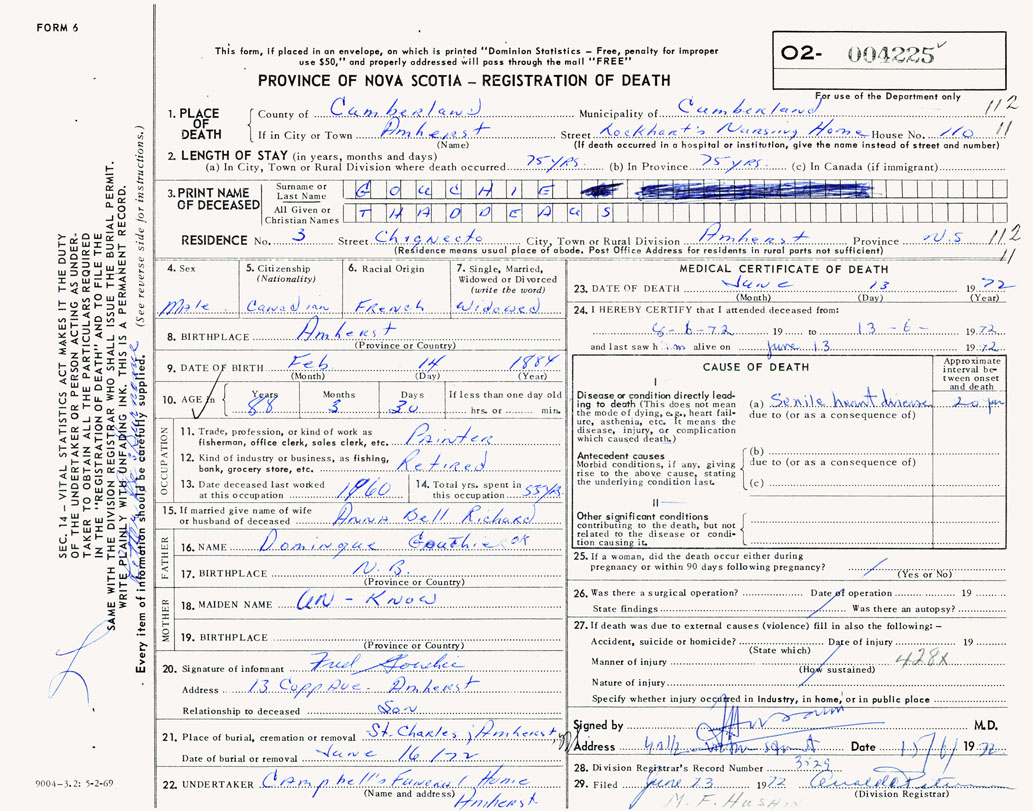 FORM 6
This form, if placed in an envelope, on which is printed "Dominion Statistics – Free, penalty for improper
use $50," and properly addressed will pass through the mail "FREE"
PROVINCE OF NOVA SCOTIA – REGISTRATION OF DEATH
O2- 004225
For use of the Department only
1. PLACE OF DEATH
County of Cumberland Municipality of Cumberland 112
If in City or Town Amherst Street Lockhart's Nursing Home House No. 110 11
(Name) (If death occurred in a hospital or institution, give the name instead of street and number)
2. LENGTH OF STAY (in years, months and days)
(a) In City, Town or Rural Division where death occurred 75 yrs. (b) In Province 75 yrs. (c) In Canada (if immigrant)
3. PRINT NAME OF DECEASED
Surname or Last Name GOUCHIE
All Given or Christian Names THADDEAUS
RESIDENCE No. 3 Street Chignecto City, Town or Rural Division Amherst Province N.S 112
(Residence means usual place of abode. Post Office Address for residents in rural parts not sufficient) 11
4. Sex
Male
5. Citizenship
(Nationality)
Canadian
6. Racial Origin
French
7. Single, Married,
Widowed or Divorced
(write the word)
Widowed
8. BIRTHPLACE Amherst
(Province or Country)
9. DATE OF BIRTH Feb. 14 1884
(Month) (Day) (Year)
10. AGE in Years Months Days If less than one day old
88 3 30 hrs. or min.
OCCUPATION
11. Trade, profession, or kind of work as
fisherman, office clerk, sales clerk, etc. Painter
12. Kind of industry or business, as fishing,
bank, grocery store, etc. Retired
13. Date deceased last worked
at this occupation 1960
14. Total yrs. spent in
this occupation 55 yrs.
15. If married give name of wife
or husband of deceased Anna Bell Richard
FATHER
16. NAME Domingue Gouthier OK
17. BIRTHPLACE N.B.
(Province or Country)
MOTHER
18. MAIDEN NAME UN - KNOW
19. BIRTHPLACE
(Province or Country)
20. Signature of informant Fred Gouchie
Address 13 Copp Ave. Amherst
Relationship to deceased Son
21. Place of burial, cremation or removal St. Charles, Amherst
Date of burial or removal June 16/72
22. UNDERTAKER Campbell's Funeral Home
(Name and address) Amherst
MEDICAL CERTIFICATE OF DEATH
23. DATE OF DEATH June 13 1972
(Month) (Day) (Year)
24. I HEREBY CERTIFY that I attended deceased from:
8-6-72 19 to 13-6- 1972
and last saw him alive on June 13 1972
CAUSE OF DEATH
Approximate interval between onset and death
I
Disease or condition directly leading to death (This does not mean the mode of dying, e.g., heart failure, asthenia, etc. It means the disease, injury, or complication which caused death.)
(a) Senile heart disease 20 yr
due to (or as a consequence of)
Antecedent causes
Morbid conditions, if any, giving rise to the above cause, stating the underlying condition last.
(b)
due to (or as a consequence of)
(c)
II
Other significant conditions
contributing to the death, but not related to the disease or condition causing it.
25. If a woman, did the death occur either during
pregnancy or within 90 days following pregnancy?
(Yes or No)
26. Was there a surgical operation? Date of operation 19
State findings Was there an autopsy?
27. If death was due to external causes (violence) fill in also the following: –
Accident, suicide or homicide? Date of injury 19
(State which)
Manner of injury 428X
(How sustained)
Nature of injury
Specify whether injury occurred in Industry, in home, or in public place
Signed by M.D.
Address Date 15/6/ 1972
28. Division Registrar's Record Number 3529
29. Filed June 23 1972
(Division Registrar)
SEC. 14 – VITAL STATISTICS ACT MAKES IT THE DUTY
OF THE UNDERTAKER OR PERSON ACTING AS UNDER-
TAKER TO OBTAIN ALL THE PARTICULARS REQUIRED
IN THE "REGISTRATION OF DEATH" AND TO FILE THE
SAME WITH THE DIVISION REGISTRAR WHO SHALL ISSUE THE BURIAL PERMIT.
WRITE PLAINLY WITH UNFADING INK. THIS IS A PERMANENT RECORD.
Every item of information should be carefully supplied. (See reverse side for instructions.)
9004–3.2: 5-2-69